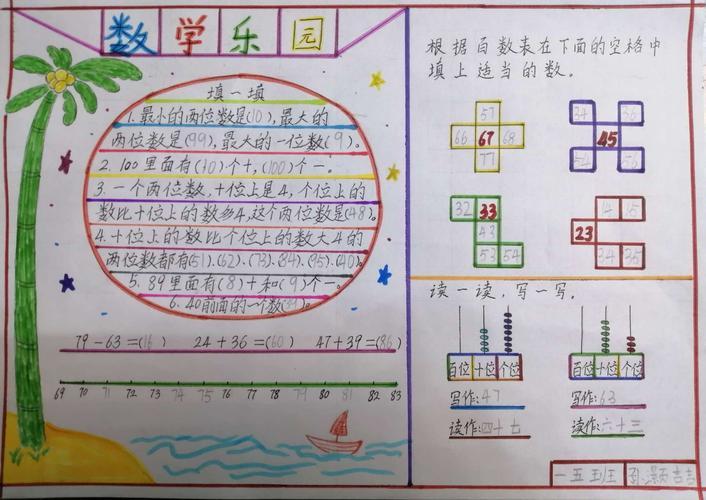 数学乐园
填一填
1.最小的两位数是(10),最大的
两位数是(99),最大的一位数(9)。
2.100里面有(10)个十,(100)个一。
3.一个两位数,十位上是4,个位上的
数比十位上的数多4,这个两位数是(48)。
4.十位上的数比个位上的数大4的
两位数都有(51)、(62)、(73)、(84)、(95)、(40)。
5.89里面有(8)十和(9)个一。
6.40前面的一个数(39)。
79-63=(16) 24+36=(60) 47+39=(86)
69 70 71 72 73 74 75 76 77 78 79 80 81 82 83
根据百数表在下面的空格中
填上适当的数。
57
66 67 68
77
34 36
45
54 56
32 33
43
53 54
14 15
23
34 35
读一读,写一写。
百位 十位 个位
写作:47
读作:四十七
百位 十位 个位
写作:63
读作:六十三
一五班